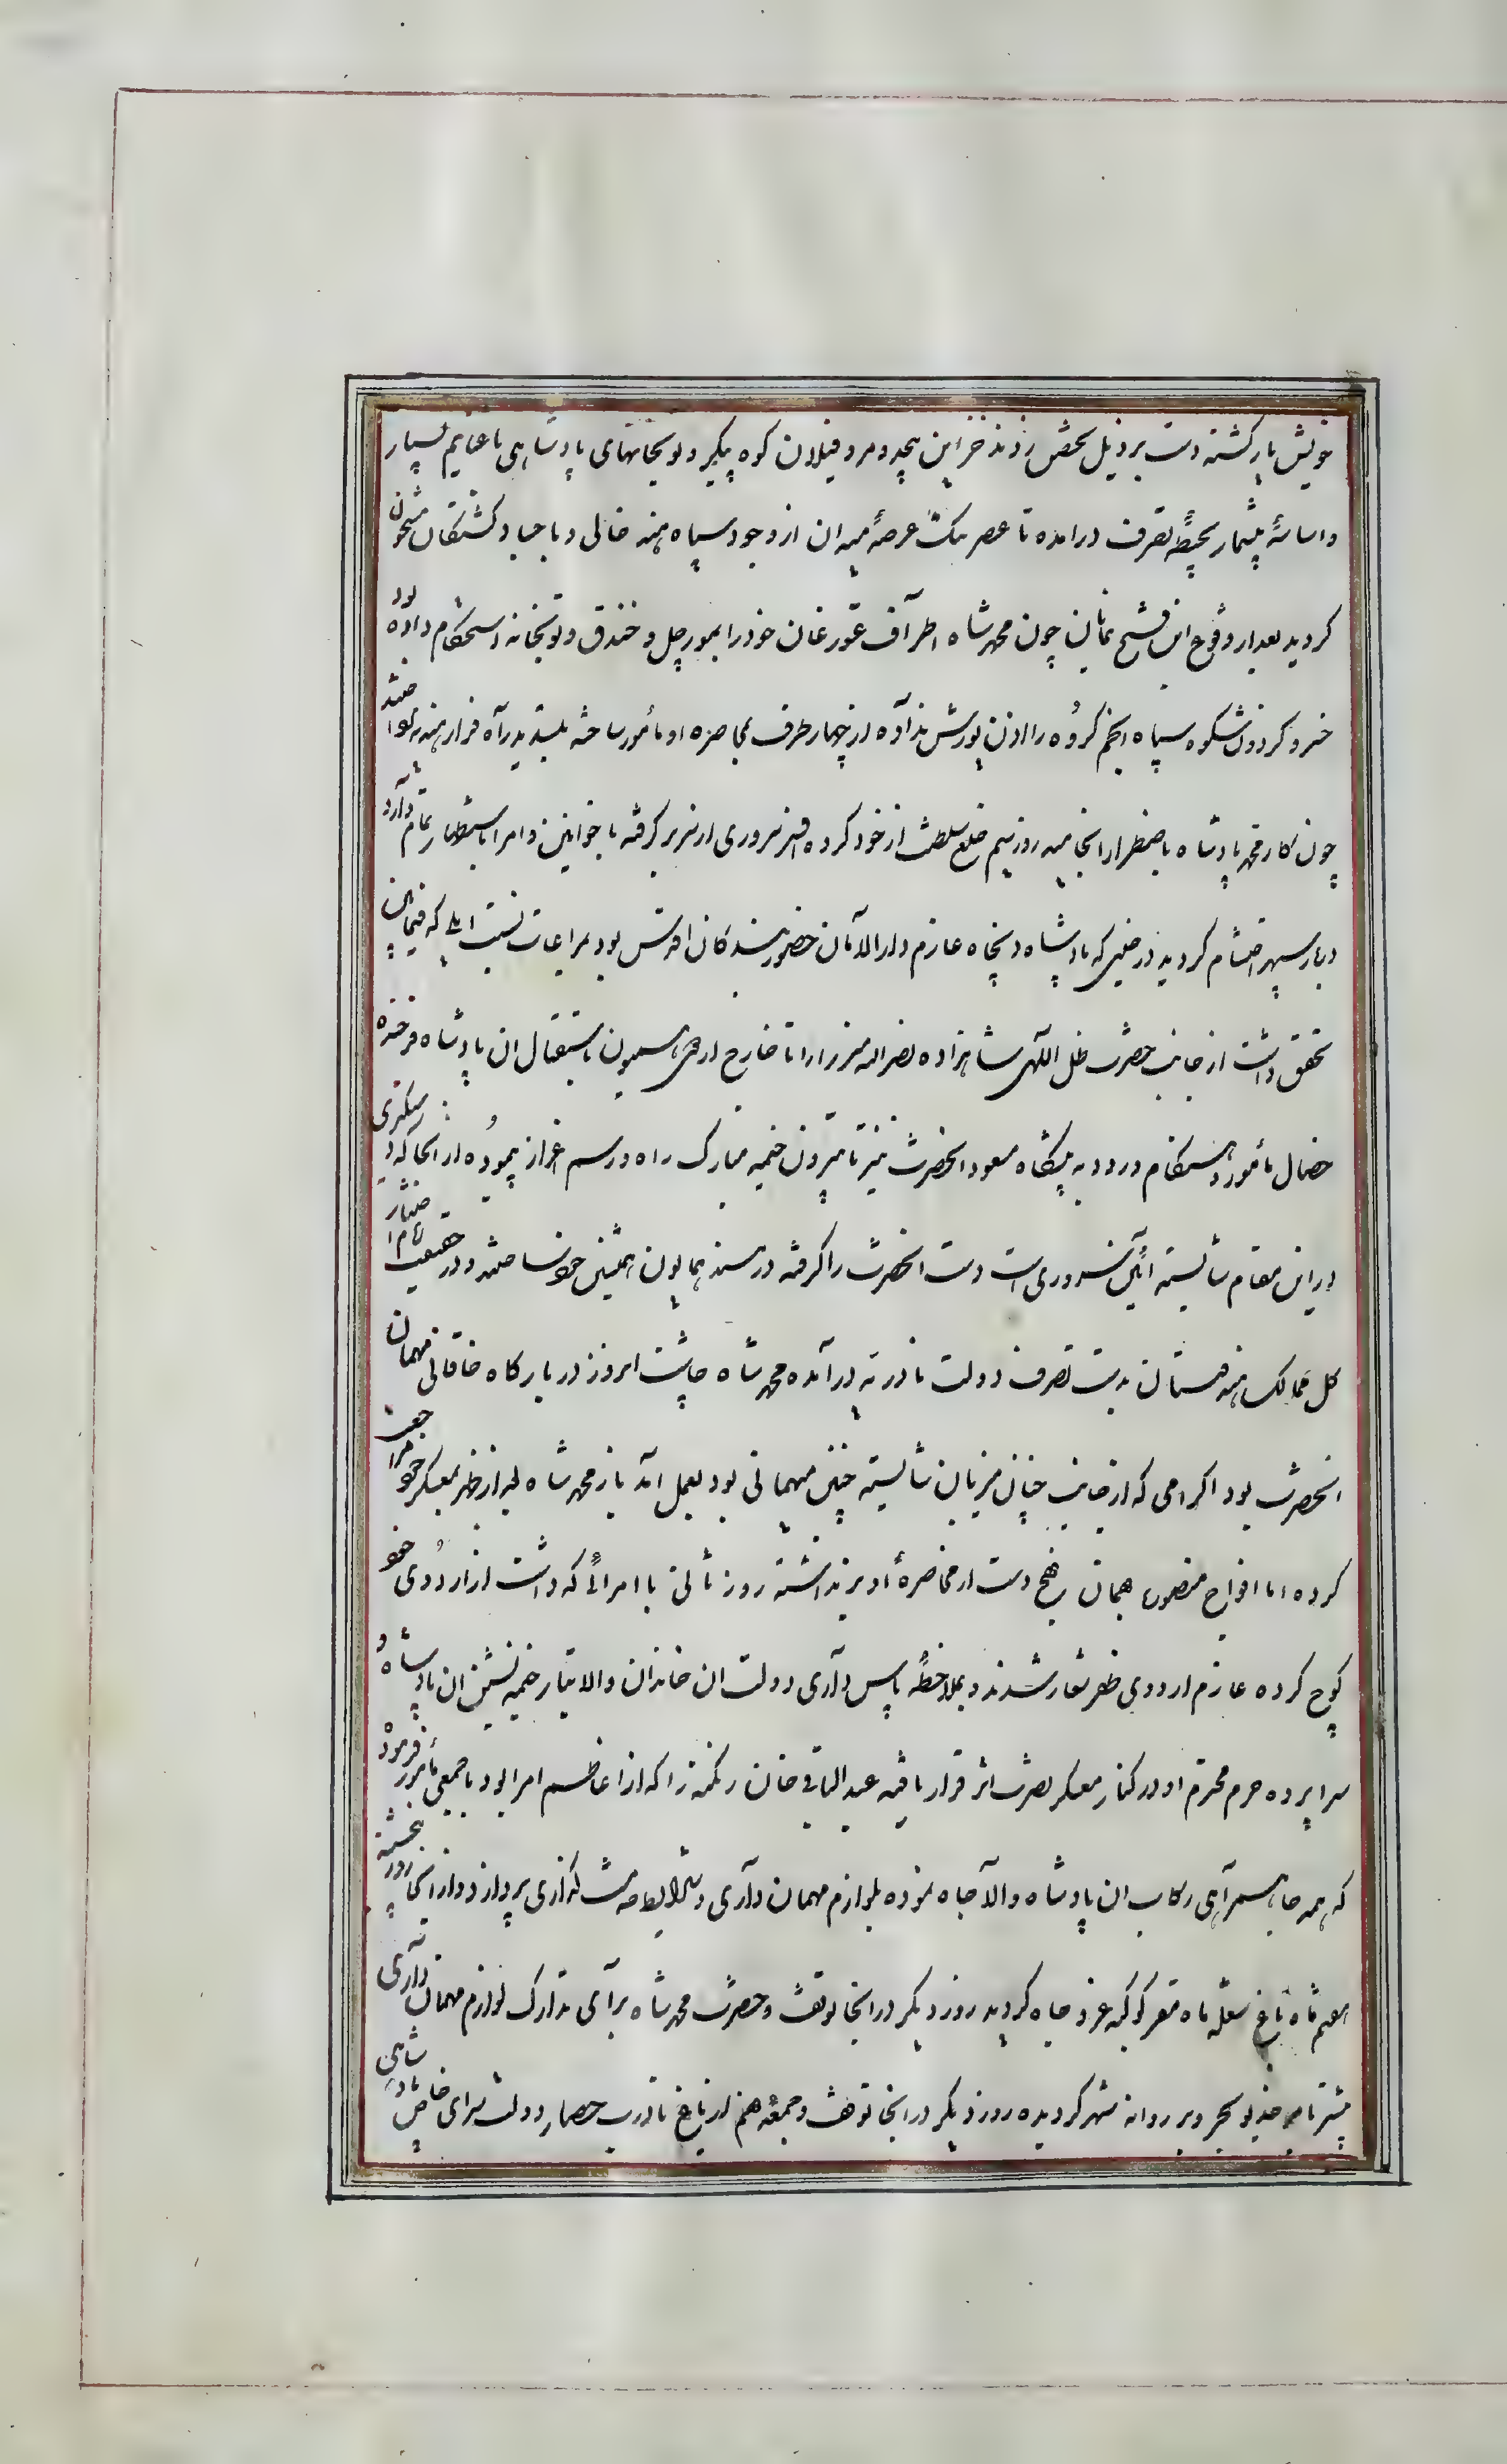 خویش بازگشته دست بر ذیل تحصن زدند خزاین بیحد و مر و فیلان کوه پیکر و توپخانهای پادشاهی با غنایم بسیار
و اساسهٔ بیشمار بحیطهٔ تصرف درامده تا عصر تنگ عرصهٔ میدان از وجود سپاه هند خالی و باجساد کشتگان مشحون
کردید بعد از وقوع این فتح نمایان چون محمد شاه اطراف غورغان خود را بمورچل و خندق و توپخانه استحکام داده بود
خسرو کردون شکوه سپاه انجم کروه را اذن یورش نداده از چهار طرف بمحاصره او مأمور ساخته بسد راه فرار هندیه پرداختند
چون کار محمد پادشاه باضطرار انجامید روز سیم خلع سلطنت از خود کرده افسر سروری از سر بر کرفته با خوانین و امرا باستظهار تمام وارد
دربار سپهر احتشام کردید در حینی که پادشاه دیجاه عازم دارالامان حضور بندکان اقدس بود بمراعات نسبت ایلی که فیمابین
تحقق داشت از جانب حضرت ظل اللهی شاهزاده نصرالله میرزا را تا خارج اردوی همیون باستقبال ان پادشاه فرخنده
خصال مأمور و هنکام ورود به پیشکاه مسعود انحضرت نیز تا بیرون خیمه مبارک راه و رسم اعزاز پیموده از انجا که دستکیری
در این مقام شایسته آئین سروری است دست انحضرت را کرفته در مسند همایون همنشین خود ساختند و در حقیقت زمام اختیار
کل ممالک هندوستان بدست تصرف دولت نادریه درآمده محمد شاه چاشت امروز در بارکاه خاقانی مهمان
انحضرت بود اکرامی که از جانب چنان میزبان شایسته چنین مهمانی بود بعمل آمد باز محمد شاه بعد از ظهر بمعسکر خود مراجعت
کرده اما افواج منصوره همان نهج دست از محاصرهٔ او برنداشته روز ثالث با امرائی که داشت از اردوی خود
کوچ کرده عازم اردوی ظفر شعار شدند و بملاحظهٔ پاس داری دولت ان خاندان والا تبار خیمه نشین ان پادشاه و
سراپرده حرم محترم او در کنار معسکر نصرت اثر قرار یافته عبدالباقی خان زنکنه را که از اعاظم امرا بود با جمعی مأمور فرمود
که همه جا همراهی رکاب ان پادشاه والا جاه نموده بلوازم مهمان داری و شرایط خدمت کذاری پردازد و از انجا روز پنجشنبه
هفتم ماه باغ شعله ماه مقر کوکبه عز و جاه کردید روز دیکر در انجا توقف و حضرت محمد شاه برای تدارک لوازم مهمان داری
پیشتر با خدیو بحر و بر روانه شهر کردیده روز دیکر در انجا توقف و جمعه هم از باغ نادرت حصار دولت سرای خاص پادشاهی